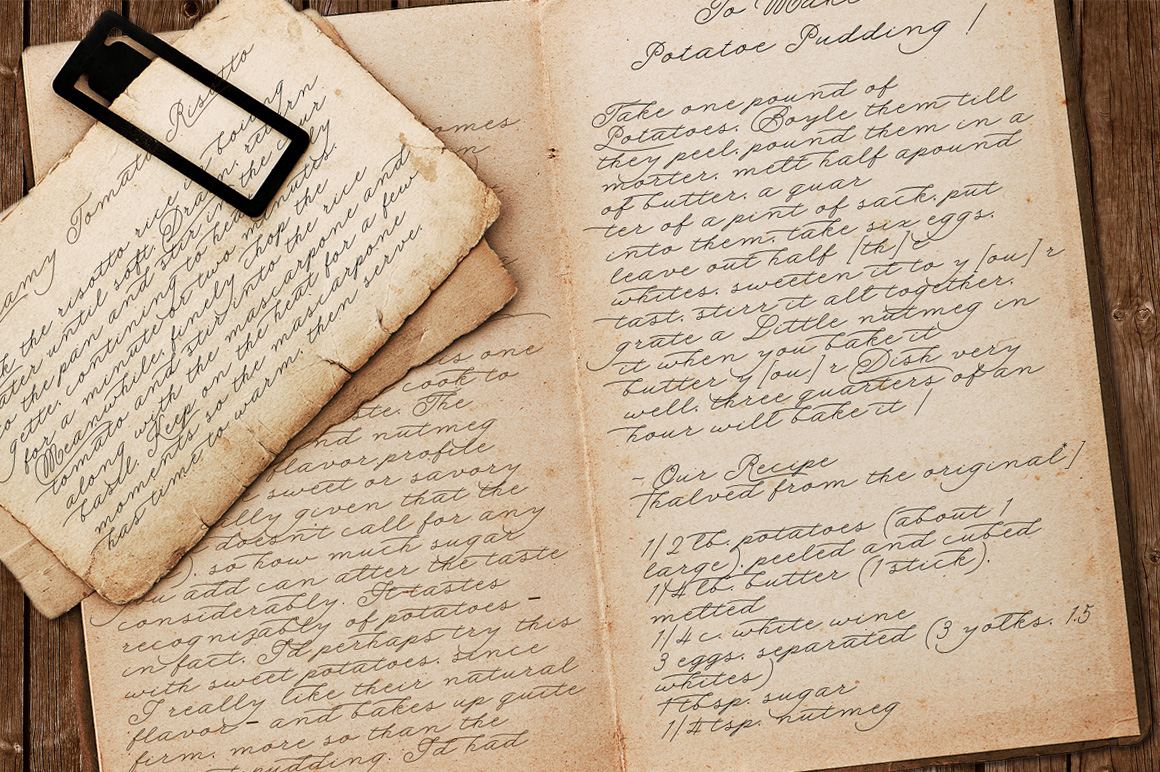 amy Tomato Risotto
k the risotto rice in boiling
ater until soft. Drain, return
to the pan and stir in the cour
gette, continuing to heat gently
for a minute or two minutes.
Meanwhile, finely chop the
tomato and stir into the rice
along with the mascarpone and
basil. Keep on the heat for a few
moments so the mascarpone
has time to warm, then serve.
omes
is one
cook to
ste. The
nd nutmeg
flavor profile
sweet or savory
ally given that the
doesn't call for any
), so how much sugar
you add can alter the taste
considerably. It tastes
recognizably of potatoes -
in fact, I'd perhaps try this
with sweet potatoes, since
I really like their natural
flavor - and bakes up quite
firm, more so than the
pudding I'd had
To Make
Potatoe Pudding !
Take one pound of
Potatoes, Boyle them till
they peel, pound them in a
morter, melt half apound
of butter, a quar
ter of a pint of sack, put
into them, take six eggs,
leave out half [th] e
whites, sweeten it to y [ou] r
tast, stirr it alt together,
grate a Little nutmeg in
it when you bake it
butter y [ou] r Dish very
well, three quarters of an
hour will bake it !
- Our Recipe
[halved from the original*]
1/2 lb. potatoes (about 1
large), peeled and cubed
1/4 lb. butter (1 stick),
melted
1/4 c. white wine
3 eggs, separated (3 yolks, 1.5
whites)
1 tbsp. sugar
1/4 tsp. nutmeg